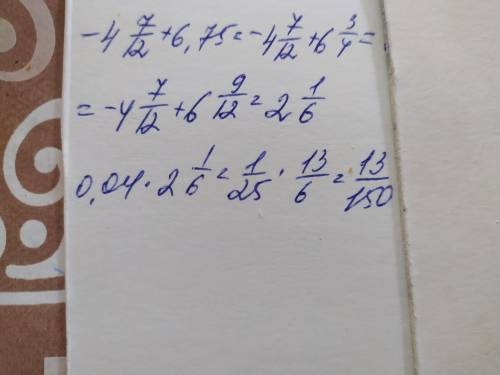 -4 7/12 + 6,75 = -4 7/12 + 6 3/4 =
= -4 7/12 + 6 9/12 = 2 1/6
0,04 · 2 1/6 = 1/25 · 13/6 = 13/150